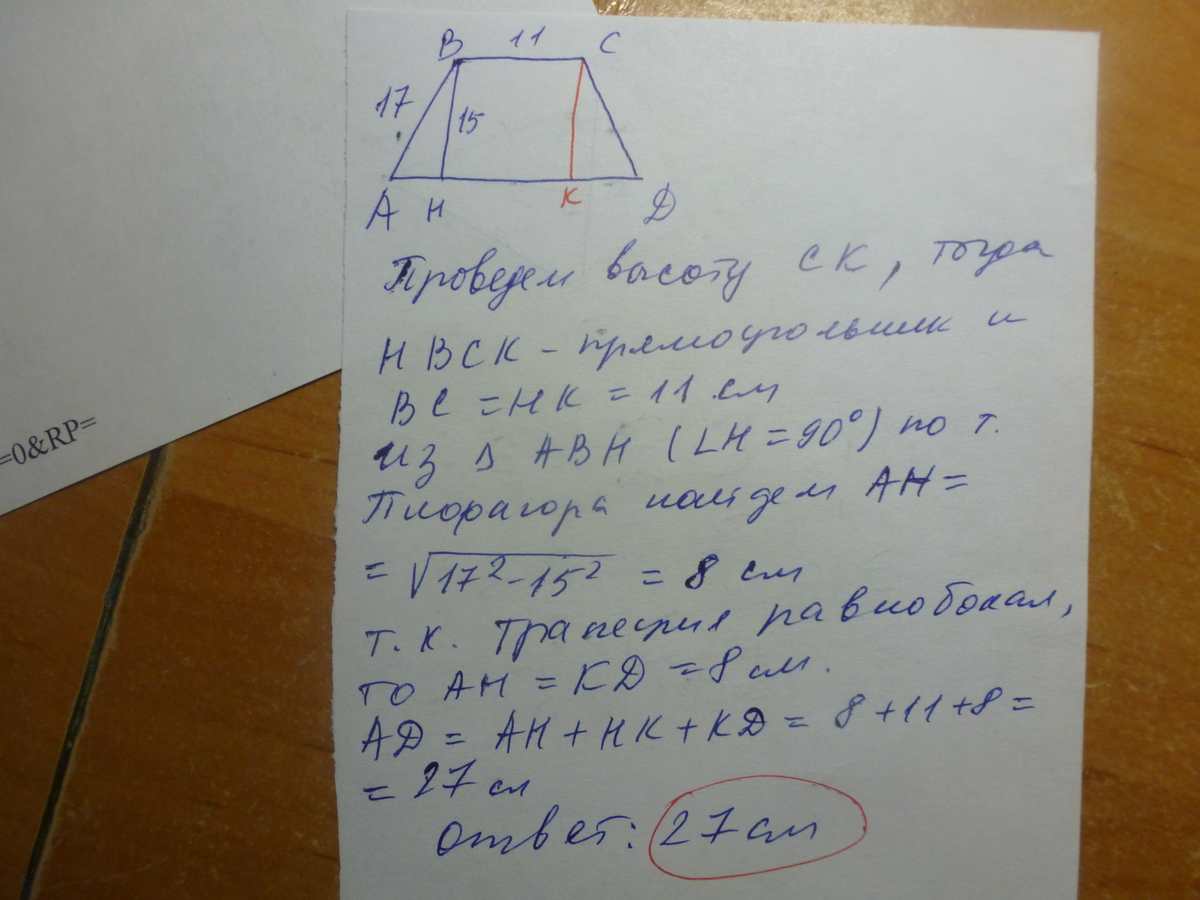 =0&RP=
B 11 C
17
15
A H K D
Проведем высоту СК, тогда
НВСК - прямоугольник и
ВС = НК = 11 см
из Δ АВН (∠Н = 90°) по т.
Пифагора найдем АН =
= √17² - 15² = 8 см
т.к. трапеция равнобокая,
то АН = КD = 8 см.
АD = АН + НК + КD = 8 + 11 + 8 =
= 27 см
ответ: 27 см